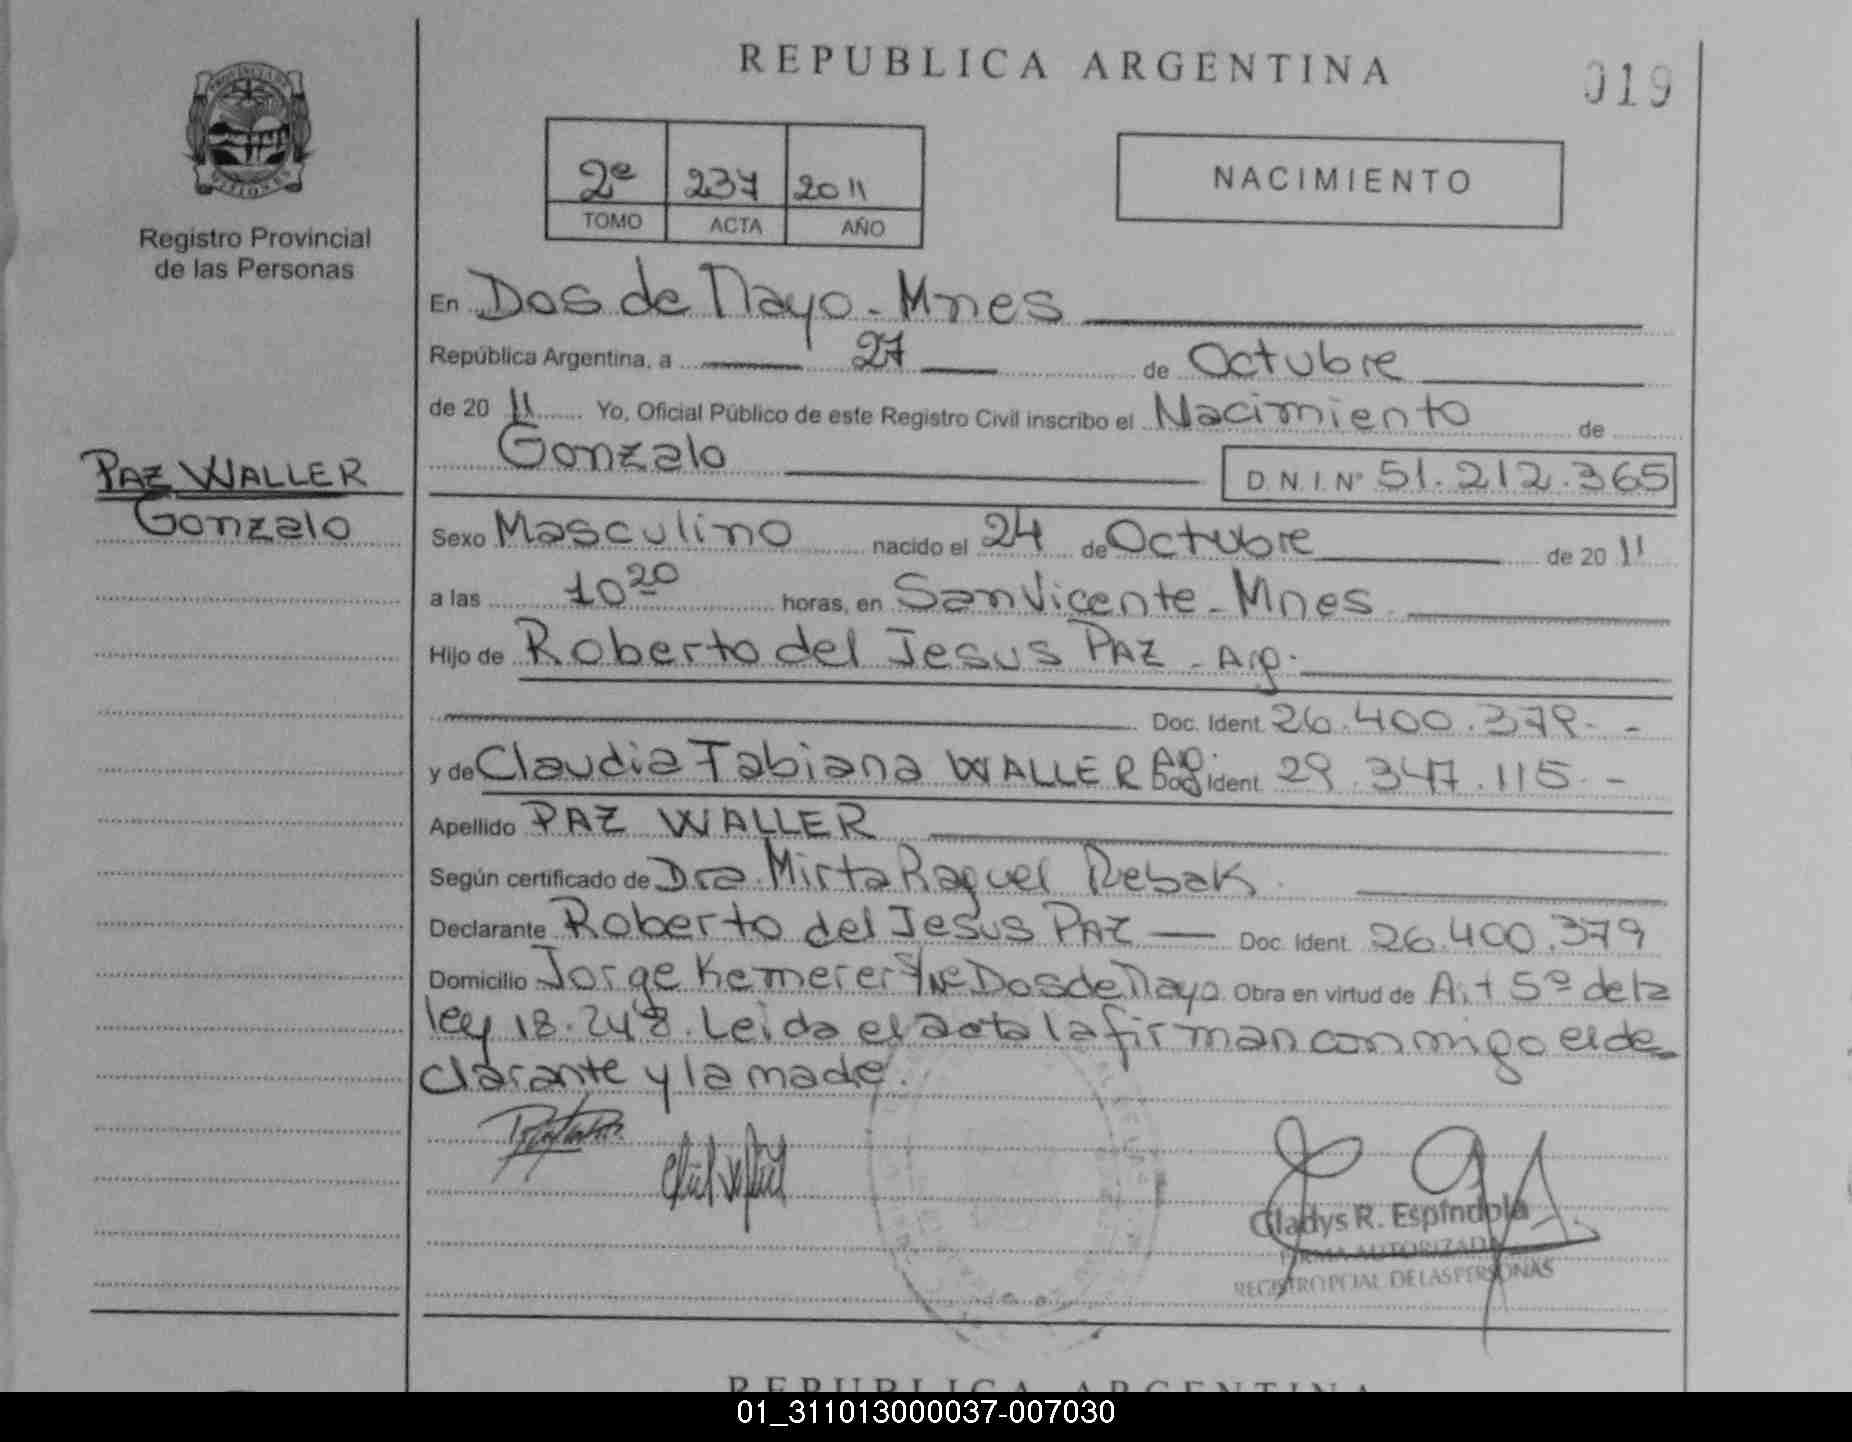 REPUBLICA ARGENTINA
019
2º 237 2011
TOMO ACTA AÑO
NACIMIENTO
Registro Provincial
de las Personas
En Dos de Mayo - Mnes
República Argentina, a 27 de Octubre
de 20 11 Yo, Oficial Público de este Registro Civil inscribo el Nacimiento de
Gonzalo D.N.I. Nº 51.212.365
PAZ WALLER
Gonzalo
Sexo Masculino nacido el 24 de Octubre de 20 11
a las 10 20 horas, en San Vicente - Mnes
Hijo de Roberto del Jesus PAZ - Arg.
Doc. Ident. 26.400.379.-
y de Claudia Fabiana WALLER Arg. Doc. Ident. 29.347.115.-
Apellido PAZ WALLER
Según certificado de Dra. Mirta Raquel Rebak.
Declarante Roberto del Jesus PAZ Doc. Ident. 26.400.379
Domicilio Jorge Kemerer S/Nº Dos de Mayo Obra en virtud de Art 5º de la
ley 18.248. Leida el acta la firman conmigo el de-
clarante y la madre.
Gladys R. Espíndola
FIRMA AUTORIZADA
REGISTRO PCIAL DE LAS PERSONAS
REPUBLICA ARGENTINA
01_311013000037-007030